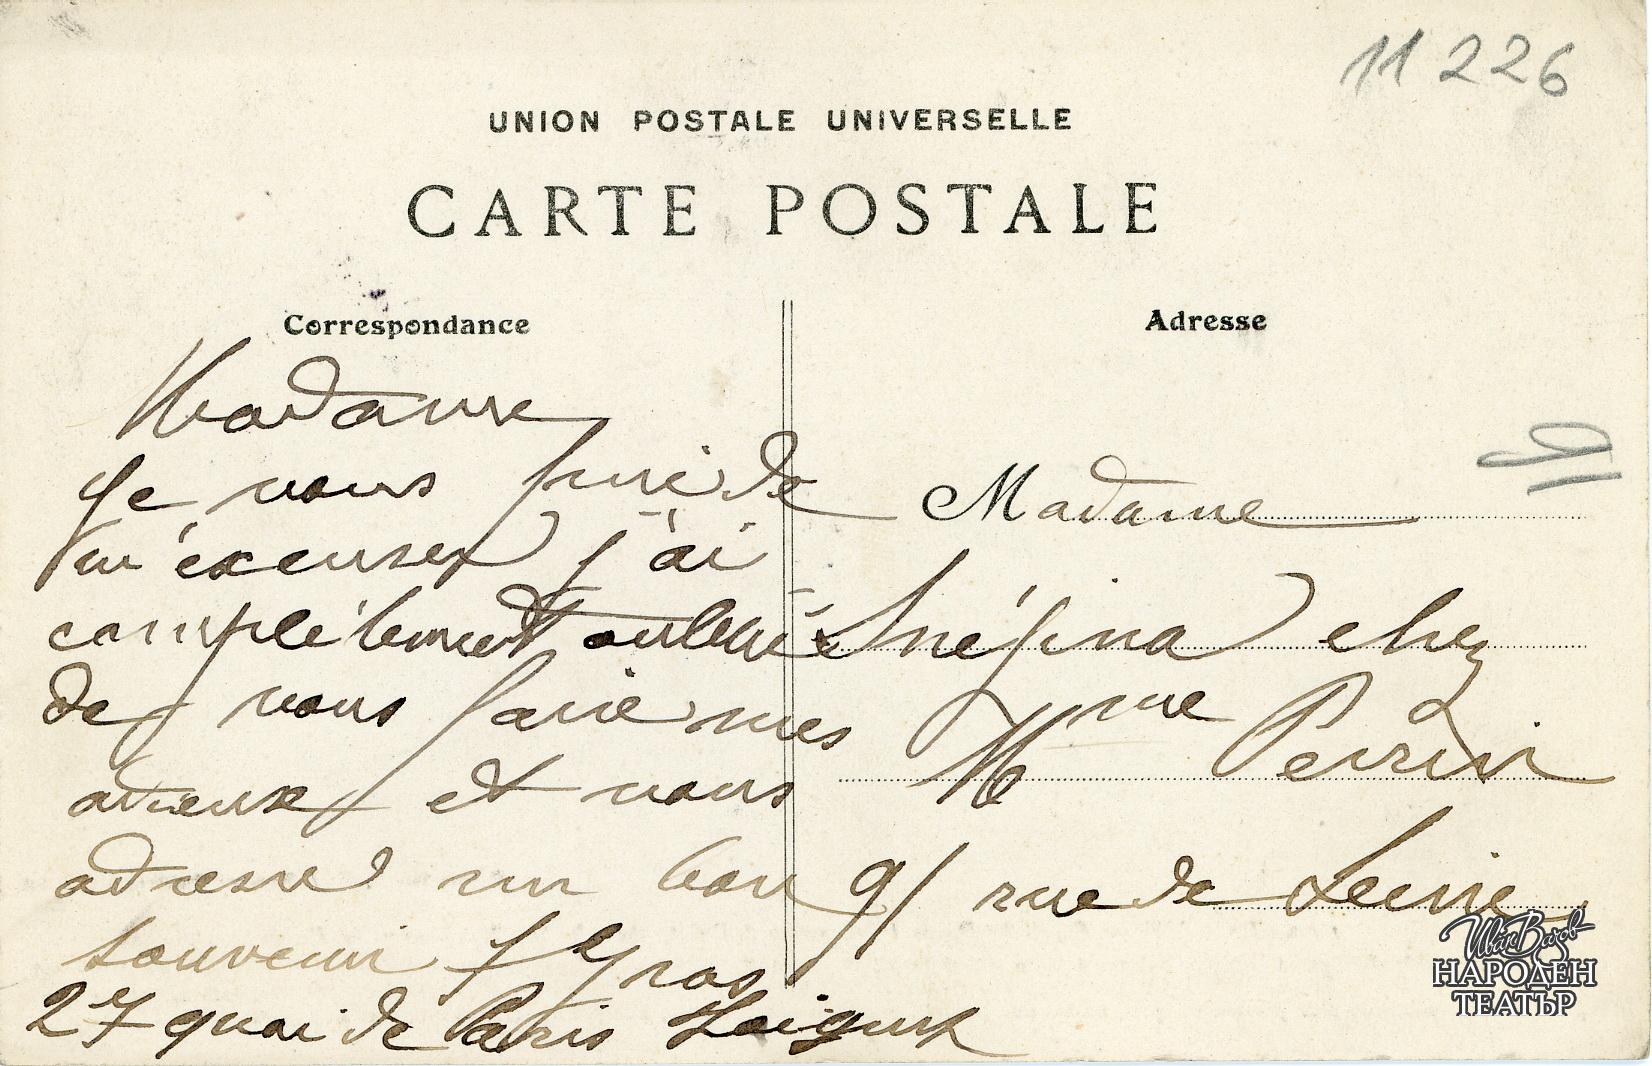 11 226
UNION POSTALE UNIVERSELLE
CARTE POSTALE
Correspondance
Madame
Je vous prie de
m'excuser j'ai
complètement oublié
de vous faire mes
adieux et vous
adresse un bon
souvenir
27 quai de Paris
Adresse
Madame
Snéjina chez
Mme Perrin
91 rue de Seine
Иван Вазов
НАРОДЕН
ТЕАТЪР